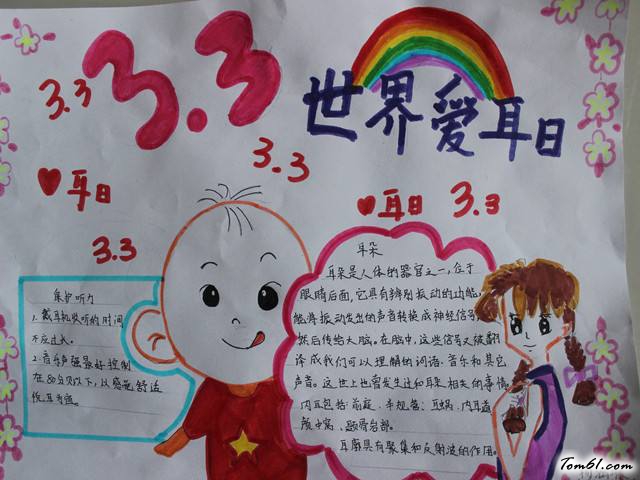 3.3
世界爱耳日
3.3
3.3
♥耳日
♥耳日 3.3
3.3
保护听力
1、戴耳机收听的时间
不应过长。
2、音乐声强最好控制
在80分贝以下,以感觉舒适
悦耳为宜。
耳朵
耳朵是人体的器官之一,位于
眼睛后面,它具有辨别振动的功能,
能将振动发出的声音转换成神经信号,
然后传给大脑。在脑中,这些信号又被翻
译成我们可以理解的词语、音乐和其它
声音。这世上也曾发生过和耳朵相关的事情。
内耳包括:前庭、半规管、耳蜗、内耳道
颞骨岩部。
耳廓具有聚集和反射波的作用。
Tom61.com